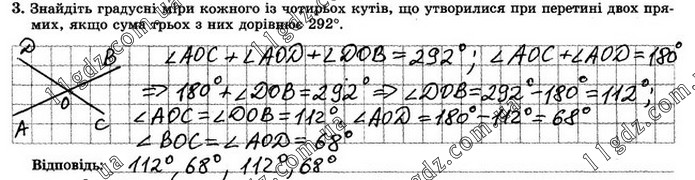 3. Знайдіть градусні міри кожного із чотирьох кутів, що утворилися при перетині двох пря-
мих, якщо сума трьох з них дорівнює 292°.
D B
O
A C
∠AOC + ∠AOD + ∠DOB = 292°; ∠AOC + ∠AOD = 180°
=> 180° + ∠DOB = 292° => ∠DOB = 292° - 180° = 112°;
∠AOC = ∠DOB = 112° ∠AOD = 180° - 112° = 68°
∠BOC = ∠AOD = 68°
Відповідь: 112°, 68°, 112°, 68°
11gdz.com.ua